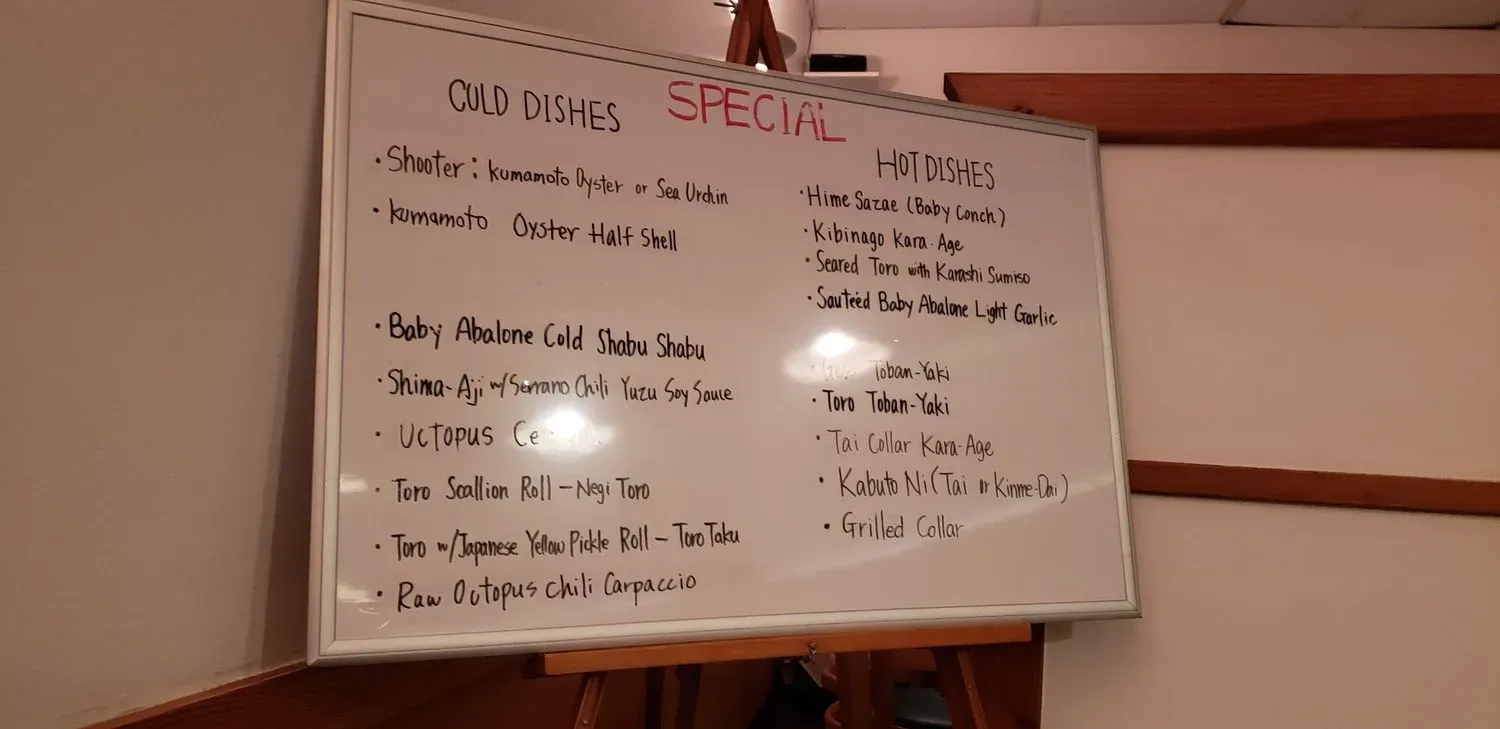 SPECIAL
COLD DISHES
• Shooter: Kumamoto Oyster or Sea Urchin
• Kumamoto Oyster Half Shell
• Baby Abalone Cold Shabu Shabu
• Shima-Aji w/Serrano Chili Yuzu Soy Sauce
• Octopus
• Toro Scallion Roll – Negi Toro
• Toro w/Japanese Yellow Pickle Roll – Toro Taku
• Raw Octopus Chili Carpaccio
HOT DISHES
• Hime Sazae (Baby Conch)
• Kibinago Kara-Age
• Seared Toro with Karashi Sumiso
• Sauteéd Baby Abalone Light Garlic
• Toban-Yaki
• Toro Toban-Yaki
• Tai Collar Kara-Age
• Kabuto Ni (Tai or Kinme-Dai)
• Grilled Collar